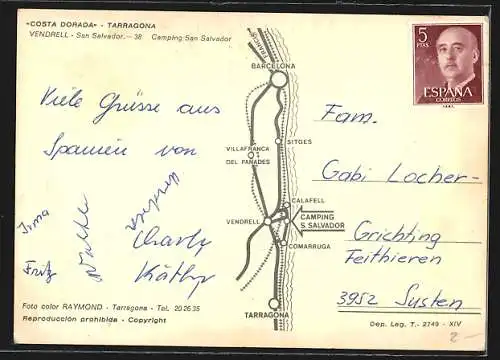 «COSTA DORADA» - TARRAGONA
VENDRELL - San Salvador. - 38 Camping San Salvador
Viele Grüsse aus
Spanien von
Irma
Fritz
Walter
Charly
Käthy
Foto color RAYMOND - Tarragona - Tel. 20 26 35
Reproducción prohibida - Copyright
FRANCIA
BARCELONA
SITGES
VILLAFRANCA
DEL PANADES
CALAFELL
VENDRELL
CAMPING
S. SALVADOR
COMARRUGA
TARRAGONA
5
PTAS
ESPAÑA
CORREOS
Fam.
Gabi Locher-
Grichting
Feithieren
3952 Susten
Dep. Leg. T.- 2749 - XIV
2-